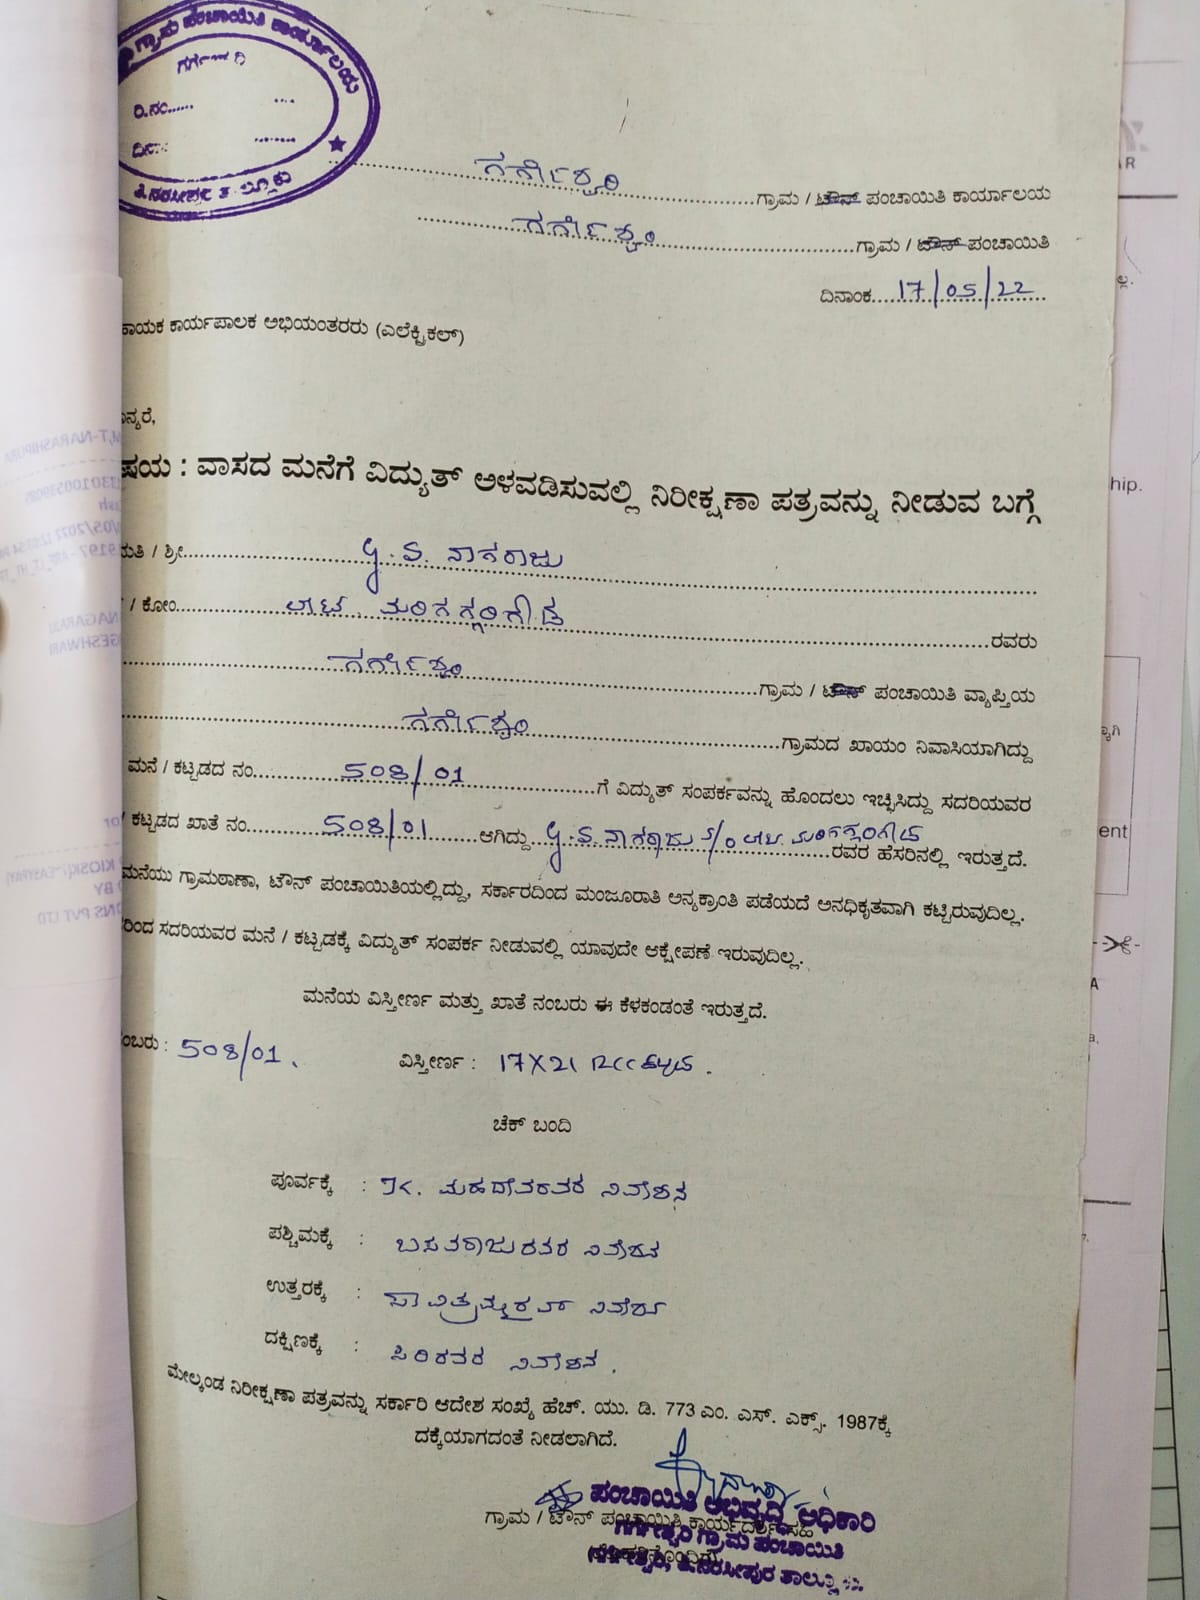 ಗ್ರಾಮ ಪಂಚಾಯಿತಿ ಕಾರ್ಯಾಲಯ
ರಿ.ನಂ......
ಗರ್ಗೇಶ್ವರಿ ಗ್ರಾಮ / ಟೌನ್ ಪಂಚಾಯಿತಿ ಕಾರ್ಯಾಲಯ
ಗರ್ಗೇಶ್ವರಿ ಗ್ರಾಮ / ಟೌನ್ ಪಂಚಾಯಿತಿ
ದಿನಾಂಕ 17/05/22
ಹಾಯಕ ಕಾರ್ಯಪಾಲಕ ಅಭಿಯಂತರರು (ಎಲೆಕ್ಟ್ರಿಕಲ್)
ನ್ಯರೆ,
ಷಯ : ವಾಸದ ಮನೆಗೆ ವಿದ್ಯುತ್ ಅಳವಡಿಸುವಲ್ಲಿ ನಿರೀಕ್ಷಣಾ ಪತ್ರವನ್ನು ನೀಡುವ ಬಗ್ಗೆ
ಮತಿ / ಶ್ರೀ G.S. ನಾಗರಾಜು
/ ಕೋಂ ರವರು
ಗರ್ಗೇಶ್ವರಿ ಗ್ರಾಮ / ಟೌನ್ ಪಂಚಾಯಿತಿ ವ್ಯಾಪ್ತಿಯ
ಗರ್ಗೇಶ್ವರಿ ಗ್ರಾಮದ ಖಾಯಂ ನಿವಾಸಿಯಾಗಿದ್ದು
ಮನೆ / ಕಟ್ಟಡದ ನಂ. 508/01 ಗೆ ವಿದ್ಯುತ್ ಸಂಪರ್ಕವನ್ನು ಹೊಂದಲು ಇಚ್ಛಿಸಿದ್ದು ಸದರಿಯವರ
/ ಕಟ್ಟಡದ ಖಾತೆ ನಂ. 508/01 ಆಗಿದ್ದು G.S. ನಾಗರಾಜು S/o ರವರ ಹೆಸರಿನಲ್ಲಿ ಇರುತ್ತದೆ.
ಮನೆಯು ಗ್ರಾಮಠಾಣಾ, ಟೌನ್ ಪಂಚಾಯಿತಿಯಲ್ಲಿದ್ದು, ಸರ್ಕಾರದಿಂದ ಮಂಜೂರಾತಿ ಅನ್ಯಕ್ರಾಂತಿ ಪಡೆಯದೆ ಅನಧಿಕೃತವಾಗಿ ಕಟ್ಟಿರುವುದಿಲ್ಲ.
ರಿಂದ ಸದರಿಯವರ ಮನೆ / ಕಟ್ಟಡಕ್ಕೆ ವಿದ್ಯುತ್ ಸಂಪರ್ಕ ನೀಡುವಲ್ಲಿ ಯಾವುದೇ ಆಕ್ಷೇಪಣೆ ಇರುವುದಿಲ್ಲ.
ಮನೆಯ ವಿಸ್ತೀರ್ಣ ಮತ್ತು ಖಾತೆ ನಂಬರು ಈ ಕೆಳಕಂಡಂತೆ ಇರುತ್ತದೆ.
ಂಬರು : 508/01. ವಿಸ್ತೀರ್ಣ : 17X21 RCC
ಚೆಕ್ ಬಂದಿ
ಪೂರ್ವಕ್ಕೆ : ಮಹದೇವರವರ ನಿವೇಶನ
ಪಶ್ಚಿಮಕ್ಕೆ : ಬಸವರಾಜುರವರ ನಿವೇಶನ
ಉತ್ತರಕ್ಕೆ :
ದಕ್ಷಿಣಕ್ಕೆ : ನಿವೇಶನ.
ಮೇಲ್ಕಂಡ ನಿರೀಕ್ಷಣಾ ಪತ್ರವನ್ನು ಸರ್ಕಾರಿ ಆದೇಶ ಸಂಖ್ಯೆ ಹೆಚ್. ಯು. ಡಿ. 773 ಎಂ. ಎಸ್. ಎಕ್ಸ್. 1987ಕ್ಕೆ
ದಕ್ಕೆಯಾಗದಂತೆ ನೀಡಲಾಗಿದೆ.
ಪಂಚಾಯಿತಿ ಅಭಿವೃದ್ಧಿ ಅಧಿಕಾರಿ
ಗ್ರಾಮ / ಟೌನ್ ಪಂಚಾಯಿತಿ ಕಾರ್ಯದರ್ಶಿ ಸಹಿ
ಗರ್ಗೇಶ್ವರಿ ಗ್ರಾಮ ಪಂಚಾಯಿತಿ
ಗರ್ಗೇಶ್ವರಿ, ತಿ.ನರಸೀಪುರ ತಾಲ್ಲೂಕು
hip.
ent